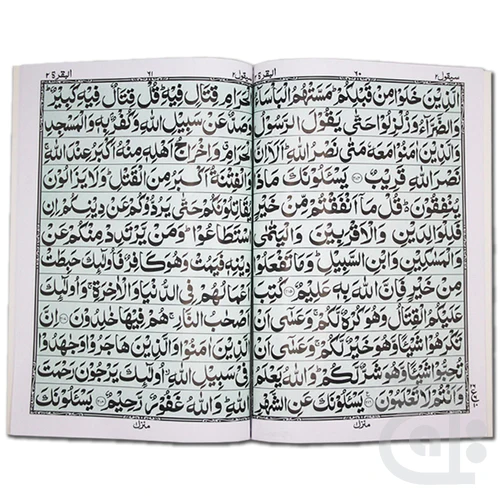 سيقول ٢ ٦٠ البقرة ٢
الَّذِيْنَ خَلَوْا مِنْ قَبْلِكُمْ ؕ مَسَّتْهُمُ الْبَاْسَآءُ
وَالضَّرَّآءُ وَزُلْزِلُوْا حَتّٰى يَقُوْلَ الرَّسُوْلُ
وَالَّذِيْنَ اٰمَنُوْا مَعَهٗ مَتٰى نَصْرُ اللّٰهِ ؕ اَلَاۤ اِنَّ
نَصْرَ اللّٰهِ قَرِيْبٌ ۝ يَسْـَٔلُوْنَكَ مَاذَا
يُنْفِقُوْنَ ؕ قُلْ مَاۤ اَنْفَقْتُمْ مِّنْ خَيْرٍ
فَلِلْوَالِدَيْنِ وَالْاَقْرَبِيْنَ وَالْيَتٰمٰى
وَالْمَسٰكِيْنِ وَابْنِ السَّبِيْلِ ؕ وَمَا تَفْعَلُوْا
مِنْ خَيْرٍ فَاِنَّ اللّٰهَ بِهٖ عَلِيْمٌ ۝ كُتِبَ
عَلَيْكُمُ الْقِتَالُ وَهُوَ كُرْهٌ لَّكُمْ ۚ وَعَسٰۤى اَنْ
تَكْرَهُوْا شَيْـًٔا وَّهُوَ خَيْرٌ لَّكُمْ ۚ وَعَسٰۤى اَنْ
تُحِبُّوْا شَيْـًٔا وَّهُوَ شَرٌّ لَّكُمْ ؕ وَاللّٰهُ يَعْلَمُ
وَاَنْتُمْ لَا تَعْلَمُوْنَ ۝ يَسْـَٔلُوْنَكَ عَنِ الشَّهْرِ
منزل
سيقول ٢ ٦١ البقرة ٢
الْحَرَامِ قِتَالٍ فِيْهِ ؕ قُلْ قِتَالٌ فِيْهِ كَبِيْرٌ ؕ
وَصَدٌّ عَنْ سَبِيْلِ اللّٰهِ وَكُفْرٌۢ بِهٖ وَالْمَسْجِدِ
الْحَرَامِ ۗ وَاِخْرَاجُ اَهْلِهٖ مِنْهُ اَكْبَرُ عِنْدَ اللّٰهِ ۚ
وَالْفِتْنَةُ اَكْبَرُ مِنَ الْقَتْلِ ؕ وَلَا يَزَالُوْنَ
يُقَاتِلُوْنَكُمْ حَتّٰى يَرُدُّوْكُمْ عَنْ دِيْنِكُمْ اِنِ
اسْتَطَاعُوْا ؕ وَمَنْ يَّرْتَدِدْ مِنْكُمْ عَنْ
دِيْنِهٖ فَيَمُتْ وَهُوَ كَافِرٌ فَاُولٰٓئِكَ حَبِطَتْ
اَعْمَالُهُمْ فِي الدُّنْيَا وَالْاٰخِرَةِ ۚ وَاُولٰٓئِكَ
اَصْحٰبُ النَّارِ ۚ هُمْ فِيْهَا خٰلِدُوْنَ ۝ اِنَّ
الَّذِيْنَ اٰمَنُوْا وَالَّذِيْنَ هَاجَرُوْا وَجٰهَدُوْا
فِيْ سَبِيْلِ اللّٰهِ ۙ اُولٰٓئِكَ يَرْجُوْنَ رَحْمَتَ
اللّٰهِ ؕ وَاللّٰهُ غَفُوْرٌ رَّحِيْمٌ ۝ يَسْـَٔلُوْنَكَ
منزل